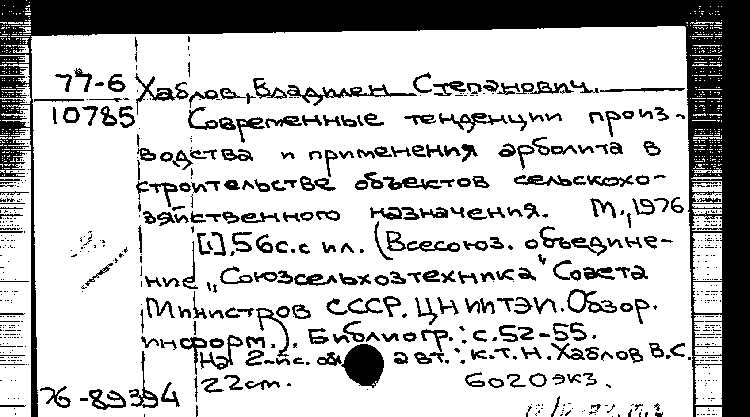 77-6 Хаблов, Владилен Степанович.
10785 Современные тенденции произ-
водства и применения арболита в
строительстве объектов сельскохо-
зяйственного назначения. М., 1976.
[1], 56 с. с ил. (Всесоюз. объедине-
ние „Союзсельхозтехника“ Совета
Министров СССР. ЦНИИТЭИ. Обзор.
информ.). Библиогр.: с. 52-55.
На 2-й с. авт.: к.т.н. Хаблов В.С.
22 см. 6020 экз.
76-89394